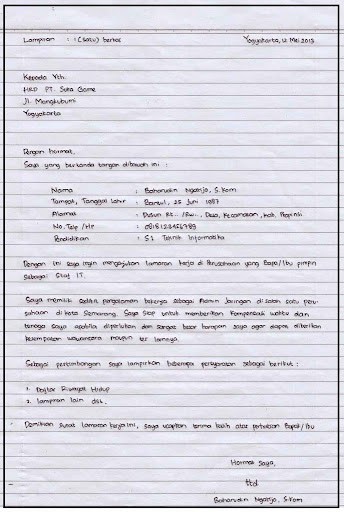 Lampiran : 1 (satu) berkas Yogyakarta, 12 Mei 2013
Kepada Yth.
HRD PT. Suka Game
Jl. Mangkubumi
Yogyakarta
Dengan hormat,
Saya yang bertanda tangan dibawah ini :
Nama : Baharudin Ngatijo, S.Kom
Tempat, Tanggal Lahir : Bantul, 25 Juni 1987
Alamat : Dusun Rt.. /Rw.., Desa, Kecamatan, Kab, Propinsi
No. Telp /HP : 0818123456789
Pendidikan : S1 Teknik Informatika
Dengan ini saya ingin mengajukan lamaran kerja di Perusahaan yang Bapa/Ibu pimpin
sebagai Staf IT.
Saya memiliki sedikit pengalaman bekerja sebagai Admin Jaringan di salah satu peru-
sahaan di kota Semarang. Saya siap untuk memberikan kompensasi waktu dan
tenaga saya apabila diperlukan dan sangat besar harapan saya agar dapat diberikan
kesempatan wawancara maupun tes lainnya.
Sebagai pertimbangan saya lampirkan beberapa persyaratan sebagai berikut :
1. Daftar Riwayat Hidup
2. lampiran lain dst.
Demikian surat lamaran kerja ini, saya ucapkan terima kasih atas perhatian Bapak/Ibu
Hormat Saya,
ttd
Baharudin Ngatijo, S.Kom